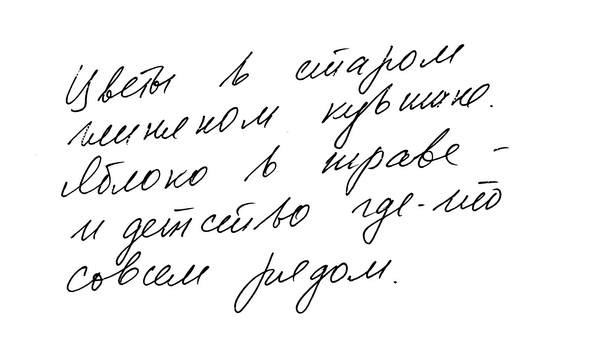 Цветы в старом
глиняном кувшине.
Яблоко в траве -
и детство где-то
совсем рядом.